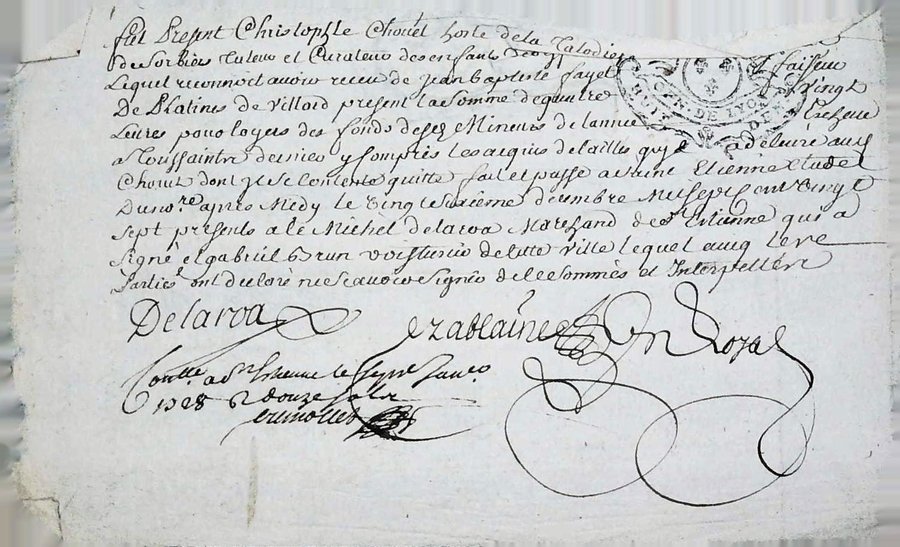 fut Present Christophle Chouet hoste de la Talodier
de Sorbiers Tuteur et Curateur des enfants
Lequel reconnoit avoir receu de Jean baptiste fayet Vingt
De Platines de villard present la somme de quatre
Livres pour loyers des fonds desd Mineurs de l'année Escheue
a Toussaintz dernier y Compris les acquis de tailles qu'il a delivré aud
Chouet dont il se Contente quitte fait et passé a Saint Etienne Etude
Du no.re apres Midy le Vingt sixieme decembre Mil sept cent Vingt
sept presents a le Michel Delaroa Marchand de St Etienne qui a
signé et gabriel Brun voiturier de lad ville lequel avec les
Parties ont declaré ne scavoir signer de ce sommés et Interpellés
DE LYON
HUIT
Delaroa
Ezablaine Nre Royal
Contlle a St Etienne le sept Janv.o
1728 R douze sols